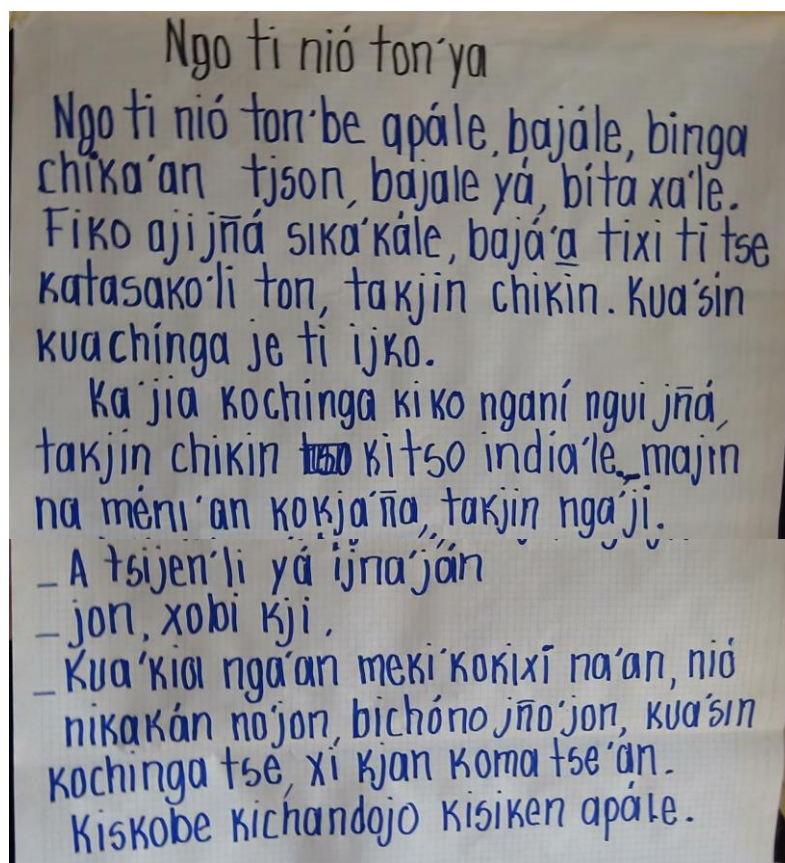 Ngo ti nió ton'ya
Ngo ti nió ton'be apále, bajále, binga
chíka'an tjson, bajale yá, bíta xa'le.
Fiko aji jñá sika'kále, bajá'a tixi ti tse
katasako'li ton, takjin chikin. Kua'sin
kuachínga je ti ijko.
Ka'jia kochinga kiko nganí ngui jñá,
takjin chikin kitso india'le, majin
na méni'an kokja'ña, takjin nga'ji.
_ A tsijen'li yá ijna'ján
_ jon, xobi kji.
_ Kua'kia nga'an meki'kokixi na'an, nió
nikakán no'jon, bichóno jño'jon, kua'sin
kochinga tse, xi kjan koma tse'an.
Kiskobe kichandojo kisiken apále.